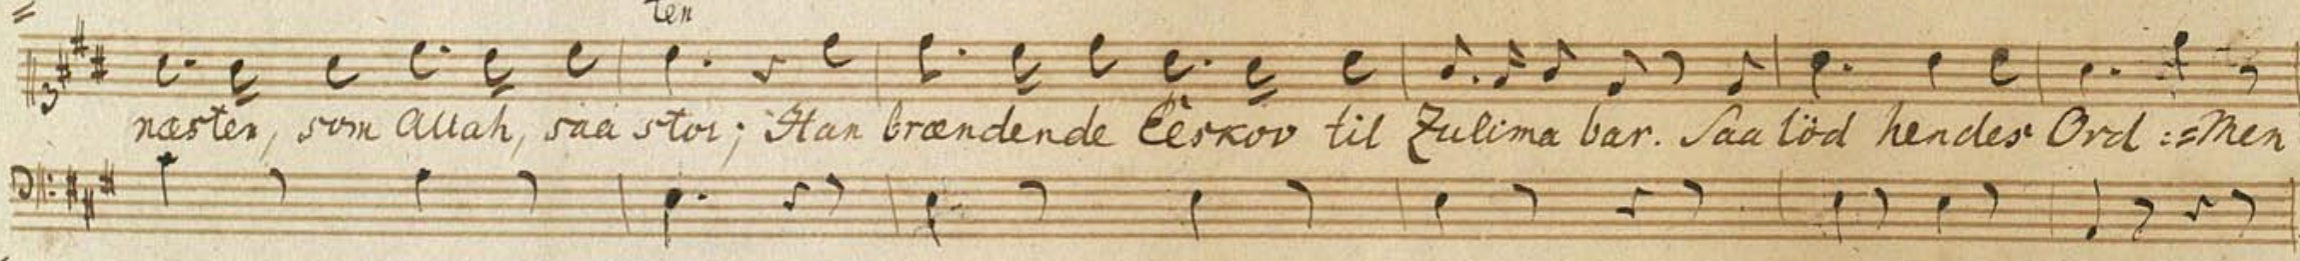 ten
næsten, som Allah, saa stor; Han brændende Elskov til Zulima bar. Saa löd hendes Ord := Men